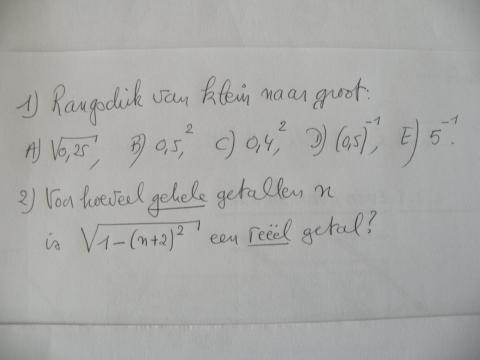 1) Rangschik van klein naar groot:
A) √0,25, B) 0,5², C) 0,4², D) (0,5)⁻¹, E) 5⁻¹.
2) Voor hoeveel gehele getallen n
is √1-(n+2)² een reëel getal?